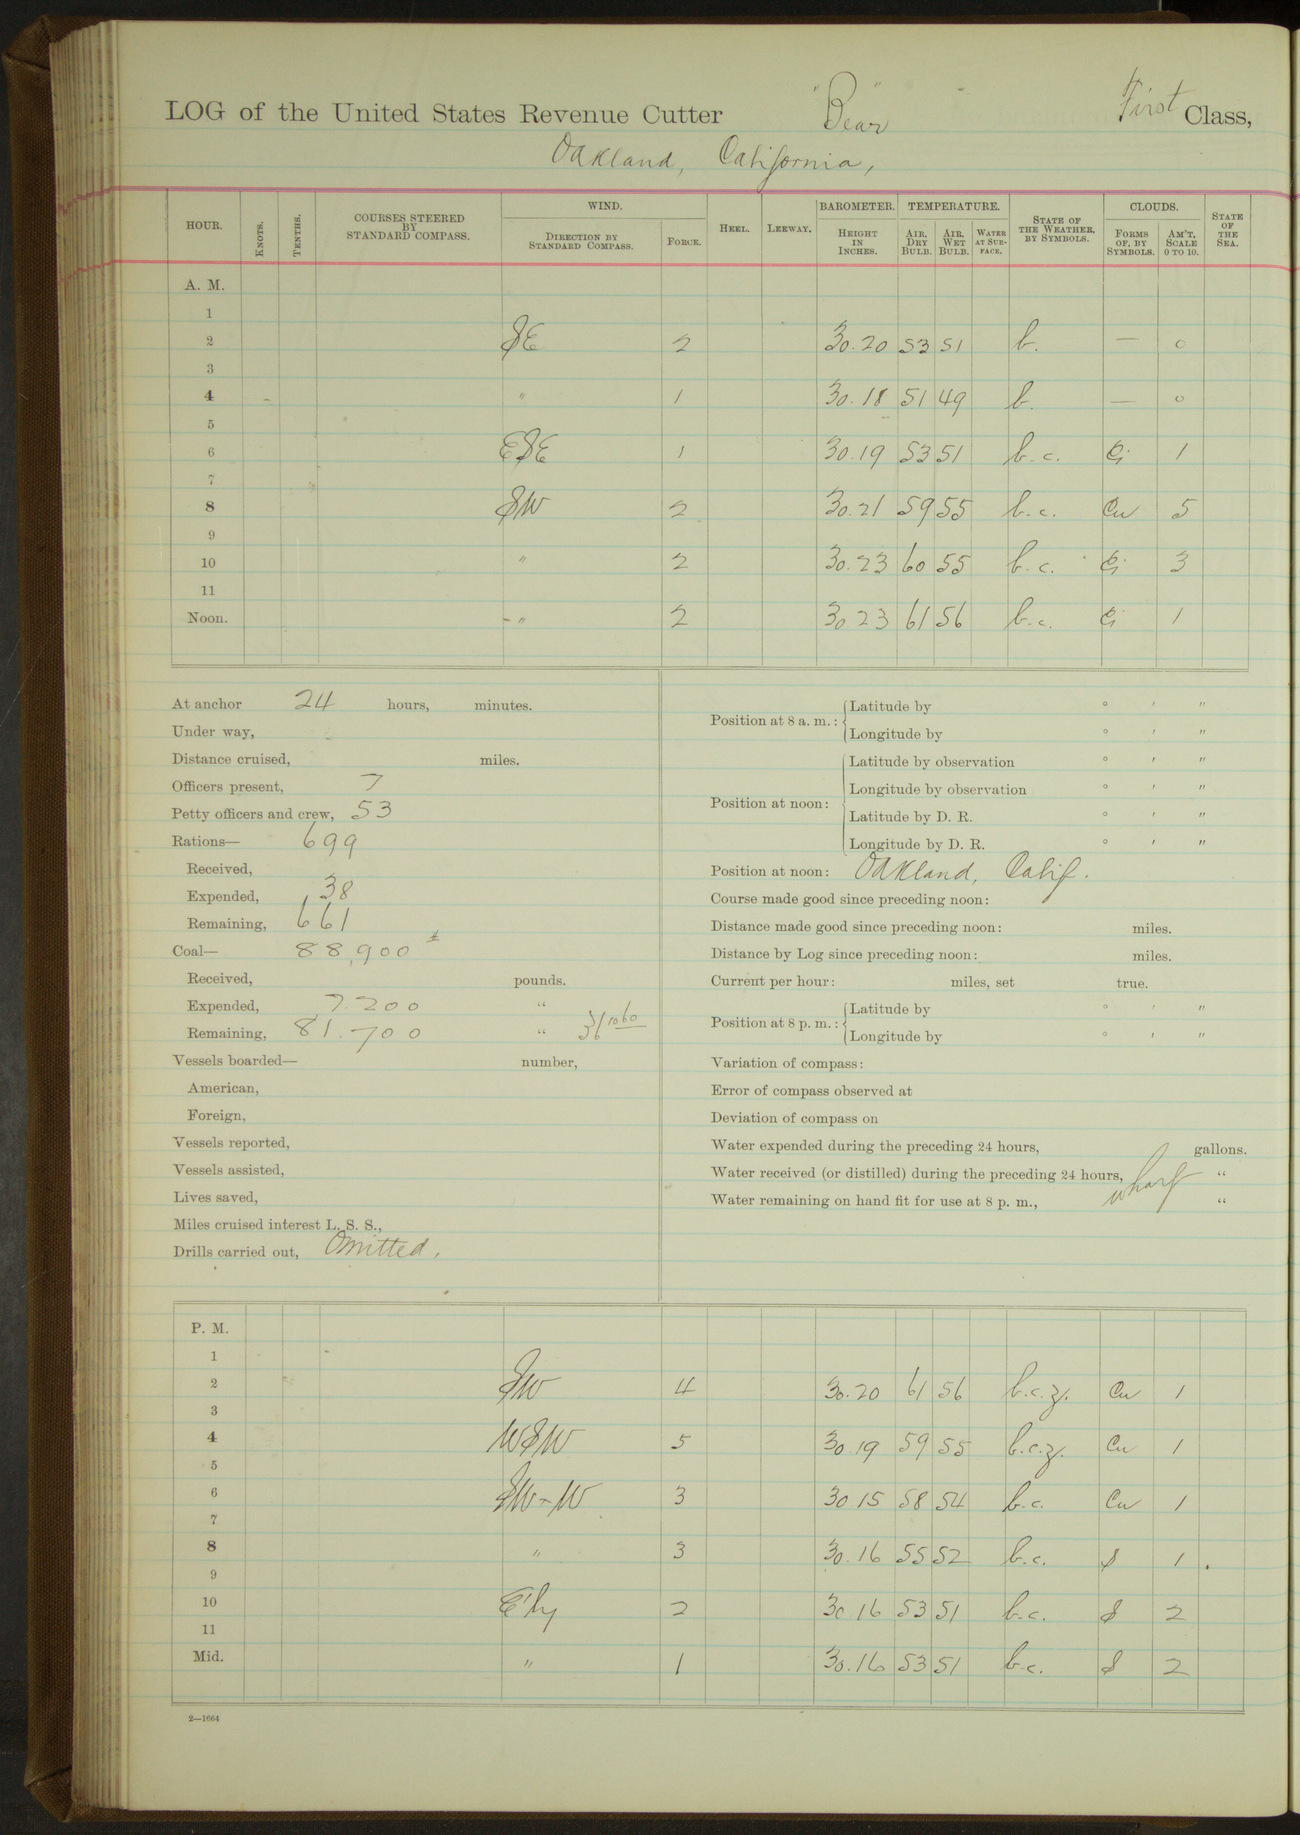 LOG of the United States Revenue Cutter "Bear" First Class,
Oakland, California,
HOUR. KNOTS. TENTHS. COURSES STEERED BY STANDARD COMPASS. WIND. DIRECTION BY STANDARD COMPASS. FORCE. HEEL. LEEWAY. BAROMETER. HEIGHT IN INCHES. TEMPERATURE. AIR, DRY BULB. AIR, WET BULB. WATER AT SURFACE. STATE OF THE WEATHER, BY SYMBOLS. CLOUDS. FORMS OF, BY SYMBOLS. AM'T, SCALE 0 TO 10. STATE OF THE SEA.
A. M.
1
2 SE 2 30.20 53 51 b. — 0
3
4 " 1 30.18 51 49 b. — 0
5
6 ESE 1 30.19 53 51 b.c. Ci 1
7
8 SW 2 30.21 59 55 b.c. Cu 5
9
10 " 2 30.23 60 55 b.c. Ci 3
11
Noon. " 2 30 23 61 56 b.c. Ci 1
At anchor 24 hours, minutes.
Under way,
Distance cruised, miles.
Officers present, 7
Petty officers and crew, 53
Rations— 699
Received,
Expended, 38
Remaining, 661
Coal— 88,900 #
Received, pounds.
Expended, 7.200 "
Remaining, 81.700 "
Vessels boarded— number,
American,
Foreign,
Vessels reported,
Vessels assisted,
Lives saved,
Miles cruised interest L. S. S.,
Drills carried out, Omitted.
Position at 8 a. m.: Latitude by ° ' "
Longitude by ° ' "
Position at noon: Latitude by observation ° ' "
Longitude by observation ° ' "
Latitude by D. R. ° ' "
Longitude by D. R. ° ' "
Position at noon: Oakland, Calif.
Course made good since preceding noon:
Distance made good since preceding noon: miles.
Distance by Log since preceding noon: miles.
Current per hour: miles, set true.
Position at 8 p. m.: Latitude by ° ' "
Longitude by ° ' "
Variation of compass:
Error of compass observed at
Deviation of compass on
Water expended during the preceding 24 hours, gallons.
Water received (or distilled) during the preceding 24 hours, "
Water remaining on hand fit for use at 8 p. m., wharf "
P. M.
1
2 SW 4 30.20 61 56 b.c.z. Cu 1
3
4 WSW 5 30.19 59 55 b.c.z. Cu 1
5
6 SW-W 3 30 15 58 54 b.c. Cu 1
7
8 " 3 30.16 55 52 b.c. S 1
9
10 E'ly 2 30 16 53 51 b.c. S 2
11
Mid. " 1 30.16 53 51 b.c. S 2
2—1664